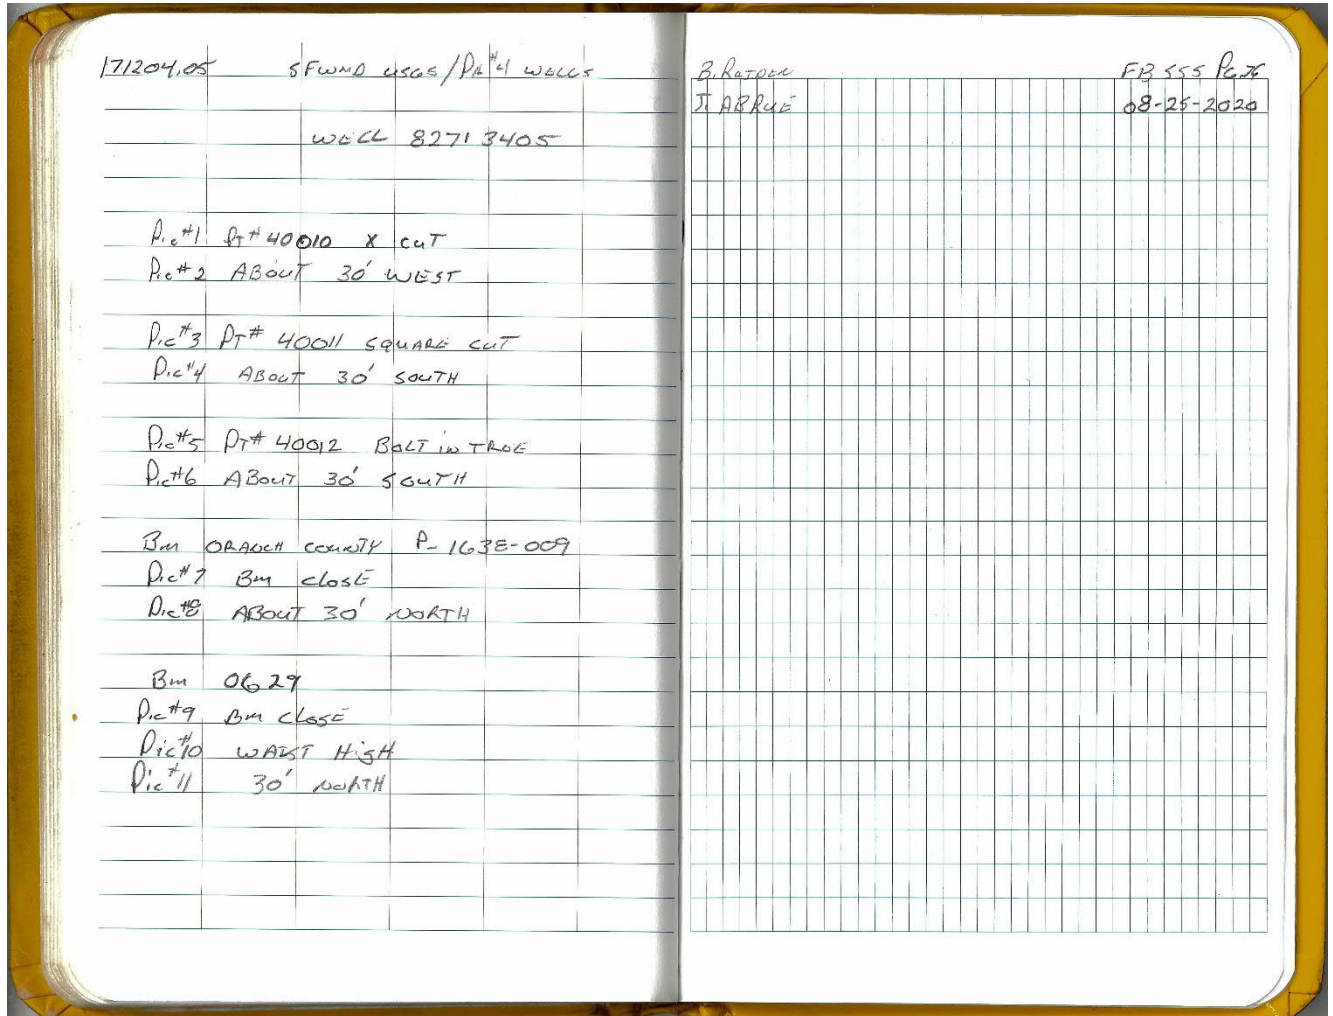 171204.05 SFWMD USGS/PH#4 WELLS
WELL 82713405
Pic#1 PT# 40010 X CUT
Pic#2 ABOUT 30' WEST
Pic#3 PT# 40011 SQUARE CUT
Pic#4 ABOUT 30' SOUTH
Pic#5 PT# 40012 BOLT in TREE
Pic#6 ABOUT 30' SOUTH
Bm ORANGE COUNTY P-163E-009
Pic#7 Bm CLOSE
Pic#8 ABOUT 30' NORTH
Bm 0G29
Pic#9 Bm CLOSE
Pic#10 WAIST HigH
Pic#11 30' NORTH
B. FB 555 PG 76
ABRUE 08-25-2020